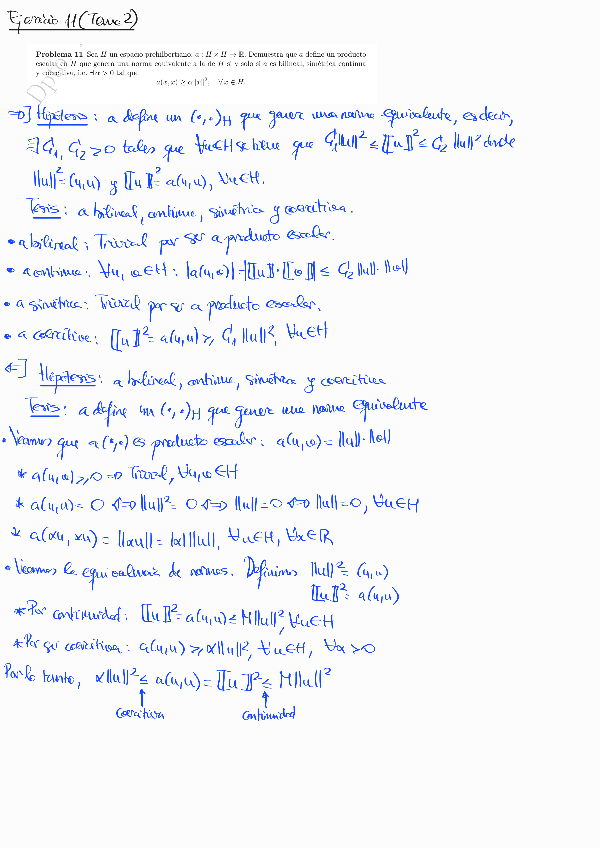 Ejercicio 11 (Tema 2)
Problema 11 Sea H un espacio prehilbertiano, a : H × H → ℝ. Demuestra que a define un producto
escalar en H que genera una norma equivalente a la de H si y solo si a es bilineal, simétrica continua
y coercitiva, i.e. ∃α > 0 tal que
a(x, x) ≥ α||x||², ∀x ∈ H.
⇒] Hipótesis: a define un (·,·)_H que genera una norma equivalente, es decir,
∃ C₁, C₂ > 0 tales que ∀u∈H se tiene que C₁||u||² ≤ [[u]]² ≤ C₂ ||u||² donde
||u||² = (u,u) y [[u]]² = a(u,u), ∀u∈H.
Tesis: a bilineal, continua, simétrica y coercitiva.
• a bilineal: Trivial por ser a producto escalar.
• a continua: ∀u, v ∈ H : |a(u,v)| = [[u]]·[[v]] ≤ C₂ ||u||·||v||
• a simétrica: Trivial por ser a producto escalar.
• a coercitiva: [[u]]² = a(u,u) ≥ C₁ ||u||², ∀u∈H
⇐] Hipótesis: a bilineal, continua, simétrica y coercitiva
Tesis: a define un (·,·)_H que genera una norma equivalente
• Veamos que a(·,·) es producto escalar: a(u,v) = ||u||·||v||
* a(u,v) ≥ 0 ⇒ Trivial, ∀u,v ∈ H
* a(u,u) = 0 ⇔ ||u||² = 0 ⇔ ||u|| = 0 ⇔ ||u|| = 0, ∀u∈H
* a(αu, αu) = ||αu|| = |α| ||u||, ∀u∈H, ∀α∈ℝ
• Veamos la equivalencia de normas. Definimos ||u||² = (u,u)
[[u]]² = a(u,u)
* Por continuidad: [[u]]² = a(u,u) ≤ M||u||², ∀u∈H
* Por ser coercitiva: a(u,u) ≥ α||u||², ∀u∈H, ∀α > 0
Por lo tanto, α||u||² ≤ a(u,u) = [[u]]² ≤ M||u||²
↑ ↑
coercitiva continuidad